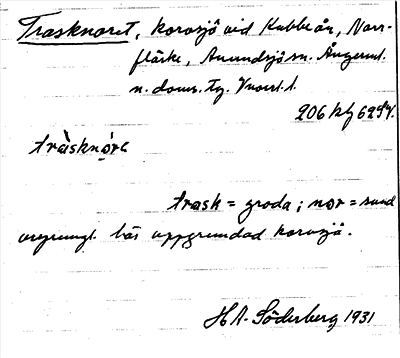 Trasknoret, korvsjö vid Kubbeån, Norr-
fläcke, Anundsjö sn. Ångerml.
n. doms. tg. Vnorrl. l.
206 kbg 6294.
tràsknó̱rɛ
trask = groda; nor = sund
ursprungl. här uppgrundad korvsjö.
H A. Söderberg 1931